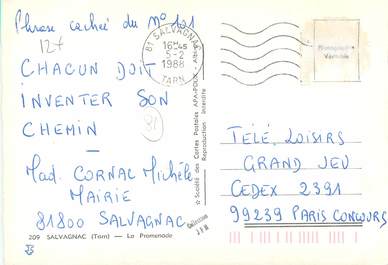 Phrase cachée du n° 121
127
CHACUN DOIT
INVENTER SON
CHEMIN –
81
Mad. CORNAC Michèle
MAIRIE
81800 SALVAGNAC
209 SALVAGNAC (Tarn) — La Promenade
81 SALVAGNAC
16H45
5-2
1988
TARN
★ Société des Cartes Postales APA-POUX - Albi ★
Reproduction interdite
Collection
TÉLÉ. LOISIRS
GRAND JEU
CEDEX 2391
99239 PARIS CONCOURS